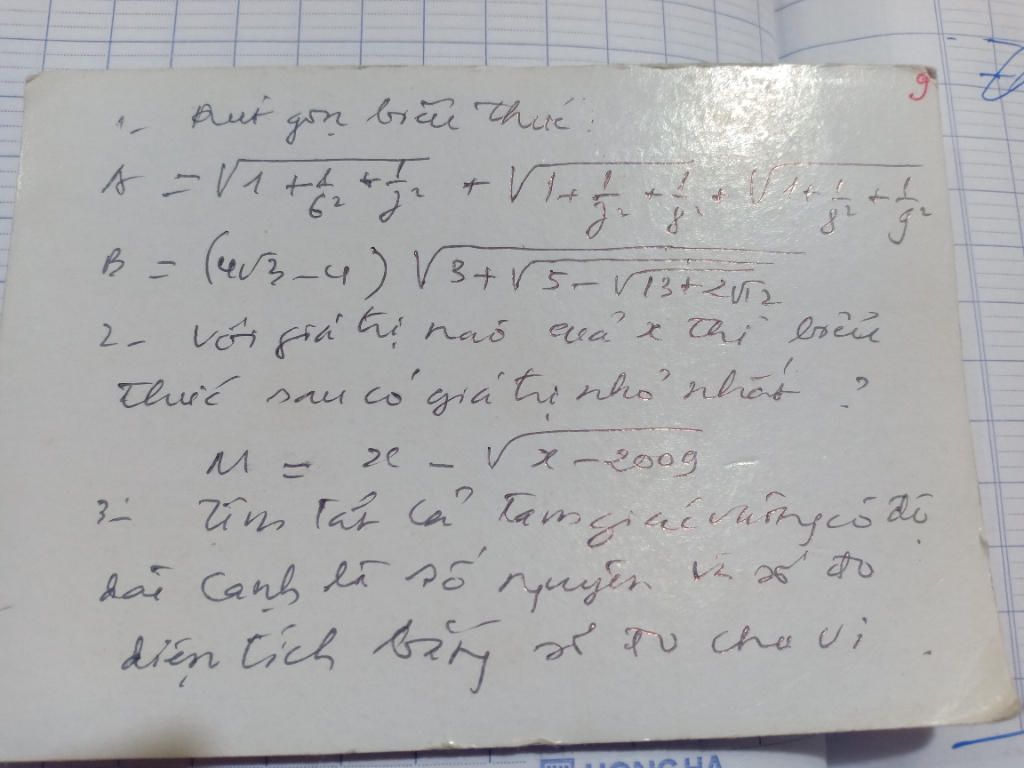 9
1- Rút gọn biểu thức:
A = √(1 + 1/6² + 1/7²) + √(1 + 1/7² + 1/8²) + √(1 + 1/8² + 1/9²)
B = (4√3 - 4) √(3 + √(5 - √(13 + 2√12)))
2- Với giá trị nào của x thì biểu
thức sau có giá trị nhỏ nhất ?
M = x - √(x - 2009)
3- Tìm tất cả tam giác vuông có độ
dài cạnh là số nguyên và số đo
diện tích bằng số đo chu vi.
HONG HA